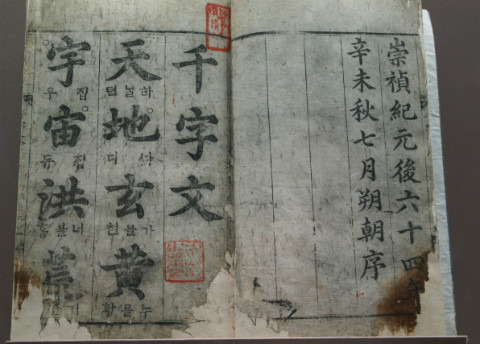 崇禎紀元後六十四年
辛未秋七月朔朝序
千字文
天 하ᄂᆞᆯ텬 地 ᄯᅡ디 玄 가믈현 黃 누를황
宇 집우 宙 집듀 洪 너블홍 荒